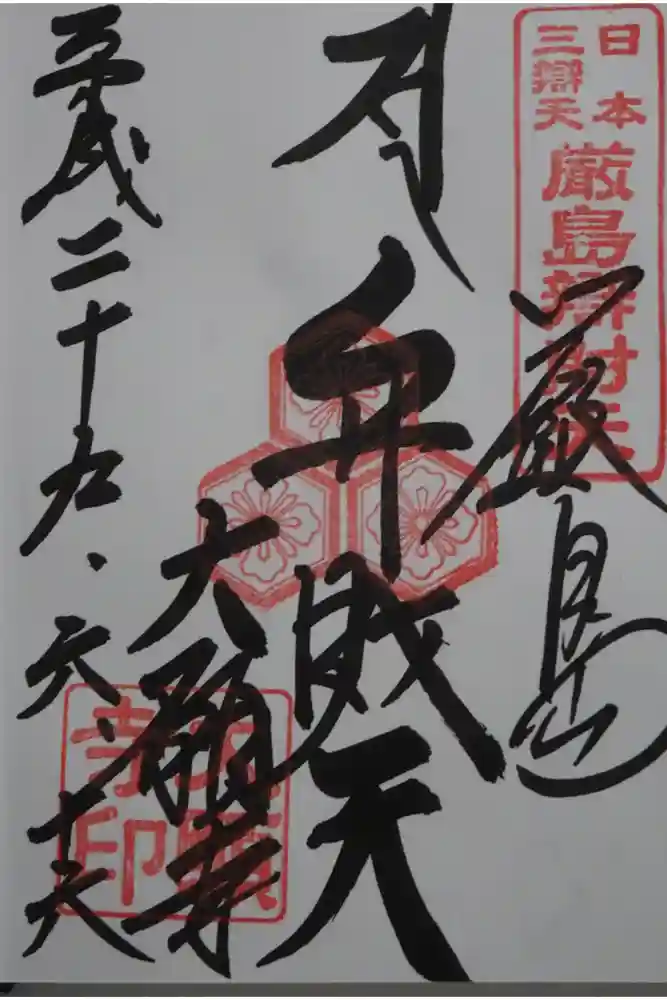 日本
三辯天
厳島辯財天
厳島
弁財天
大願寺
大願寺印
平成二十九、六、十六